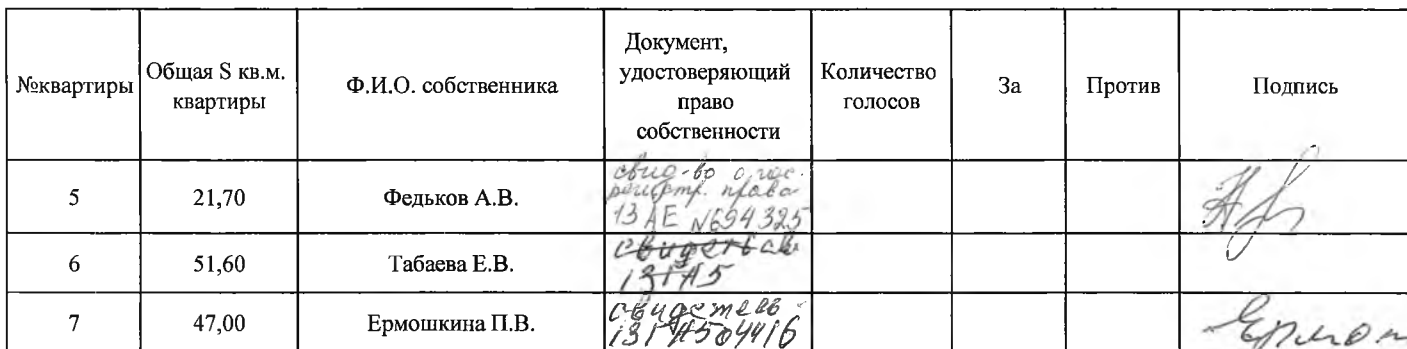 №квартиры
Общая S кв.м.
квартиры
Ф.И.О. собственника
Документ,
удостоверяющий
право
собственности
Количество
голосов
За
Против
Подпись
5
21,70
Федьков А.В.
свид-во о гос.
регистр. права
13 АЕ №694325
6
51,60
Табаева Е.В.
7
47,00
Ермошкина П.В.